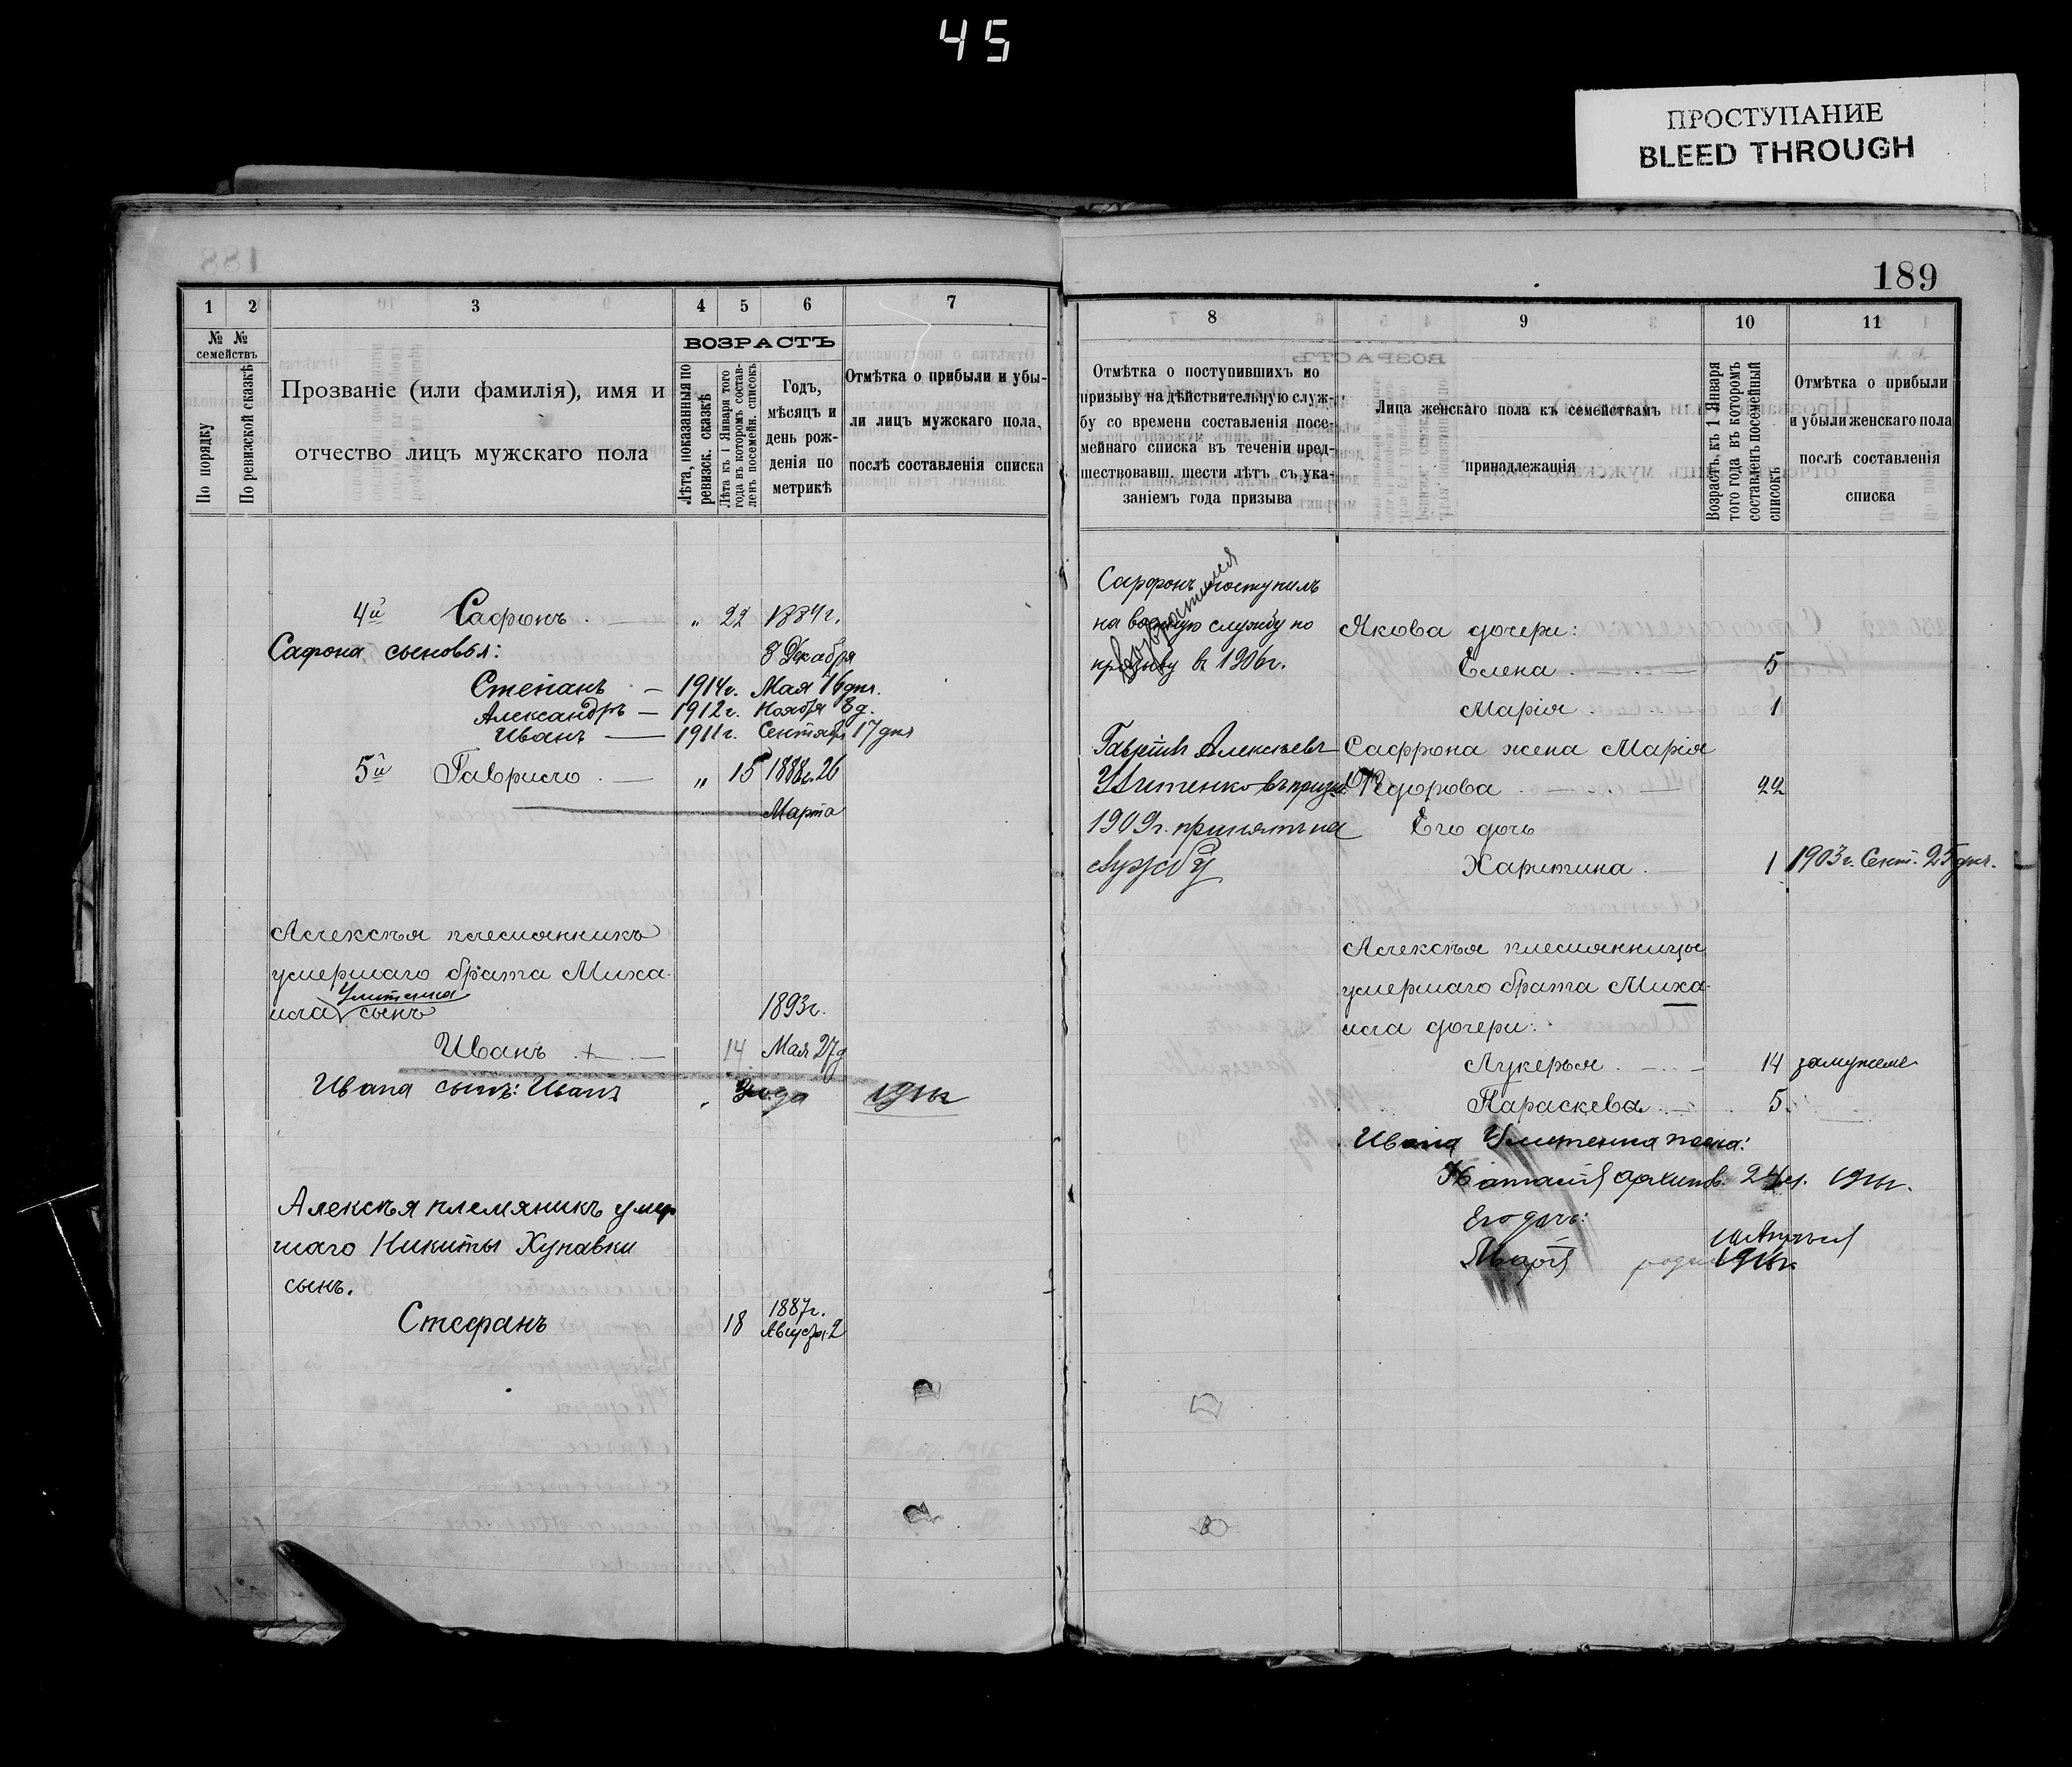 45
ПРОСТУПАНИЕ
BLEED THROUGH
188
1 2 3 4 5 6 7
№ № семействъ
По порядку
По ревизской сказкѣ
Прозваніе (или фамилія), имя и
отчество лицъ мужскаго пола
ВОЗРАСТЪ
Лѣта, показанныя по
ревизск. сказкѣ
Лѣта къ 1 Января того
года въ которомъ состав-
ленъ посемейн. списокъ
Годъ,
мѣсяцъ и
день рож-
денія по
метрикѣ
Отмѣтка о прибыли и убы-
ли лицъ мужскаго пола,
послѣ составленія списка
4й Сафонъ . — „ 22 1884г.
Сафона сыновья: 8 Декабря
Степанъ — 1914г. Мая 16 дня.
Александръ — 1912г. Ноября 8 д.
Иванъ — 1911г. Сентября 17 дня
5й Гавріило . — „ 15 1888г. 26
Марта
Алексѣя племянникъ
умершаго брата Миха-
Улитенка
ила сынъ 1893г.
Иванъ . + . — 14 Мая 27 д
Ивана сынъ: Иванъ 1911г
Алексѣя племяникъ умер
шаго Никиты Хупавки
сынъ.
Стефанъ 18 1887г.
Августа 2
189
8 9 10 11
Отмѣтка о поступившихъ по
призыву на дѣйствительную служ-
бу со времени составленія посе-
мейнаго списка въ теченіи пред-
шествовавш. шести лѣтъ съ ука-
заніемъ года призыва
Лица женскаго пола къ семействамъ
принадлежащія
Возрастъ къ 1 Января
того года въ которомъ
составленъ посемейный
списокъ
Отмѣтка о прибыли
и убыли женскаго пола
послѣ составленія
списка
Сафронъ поступилъ
на военную службу по
призыву в 1906г.
Возвратился
Гавріилъ Алексѣевъ
Улитенко въ призывъ
1909г. принятъ на
службу
Якова дочери:
Елена . — . — 5
Марія . 1
Сафрона жена Марія
Федорова . — . — 22
Его дочь
Харитина . — 1 1903г. Сент. 25 дня.
Алексѣя племянницы
умершаго брата Миха-
ила дочери:
Лукерья . — . — 14 замужемъ
Параскева . — 5.
Ивана Улитенка жена:
Его дочь:
Марія